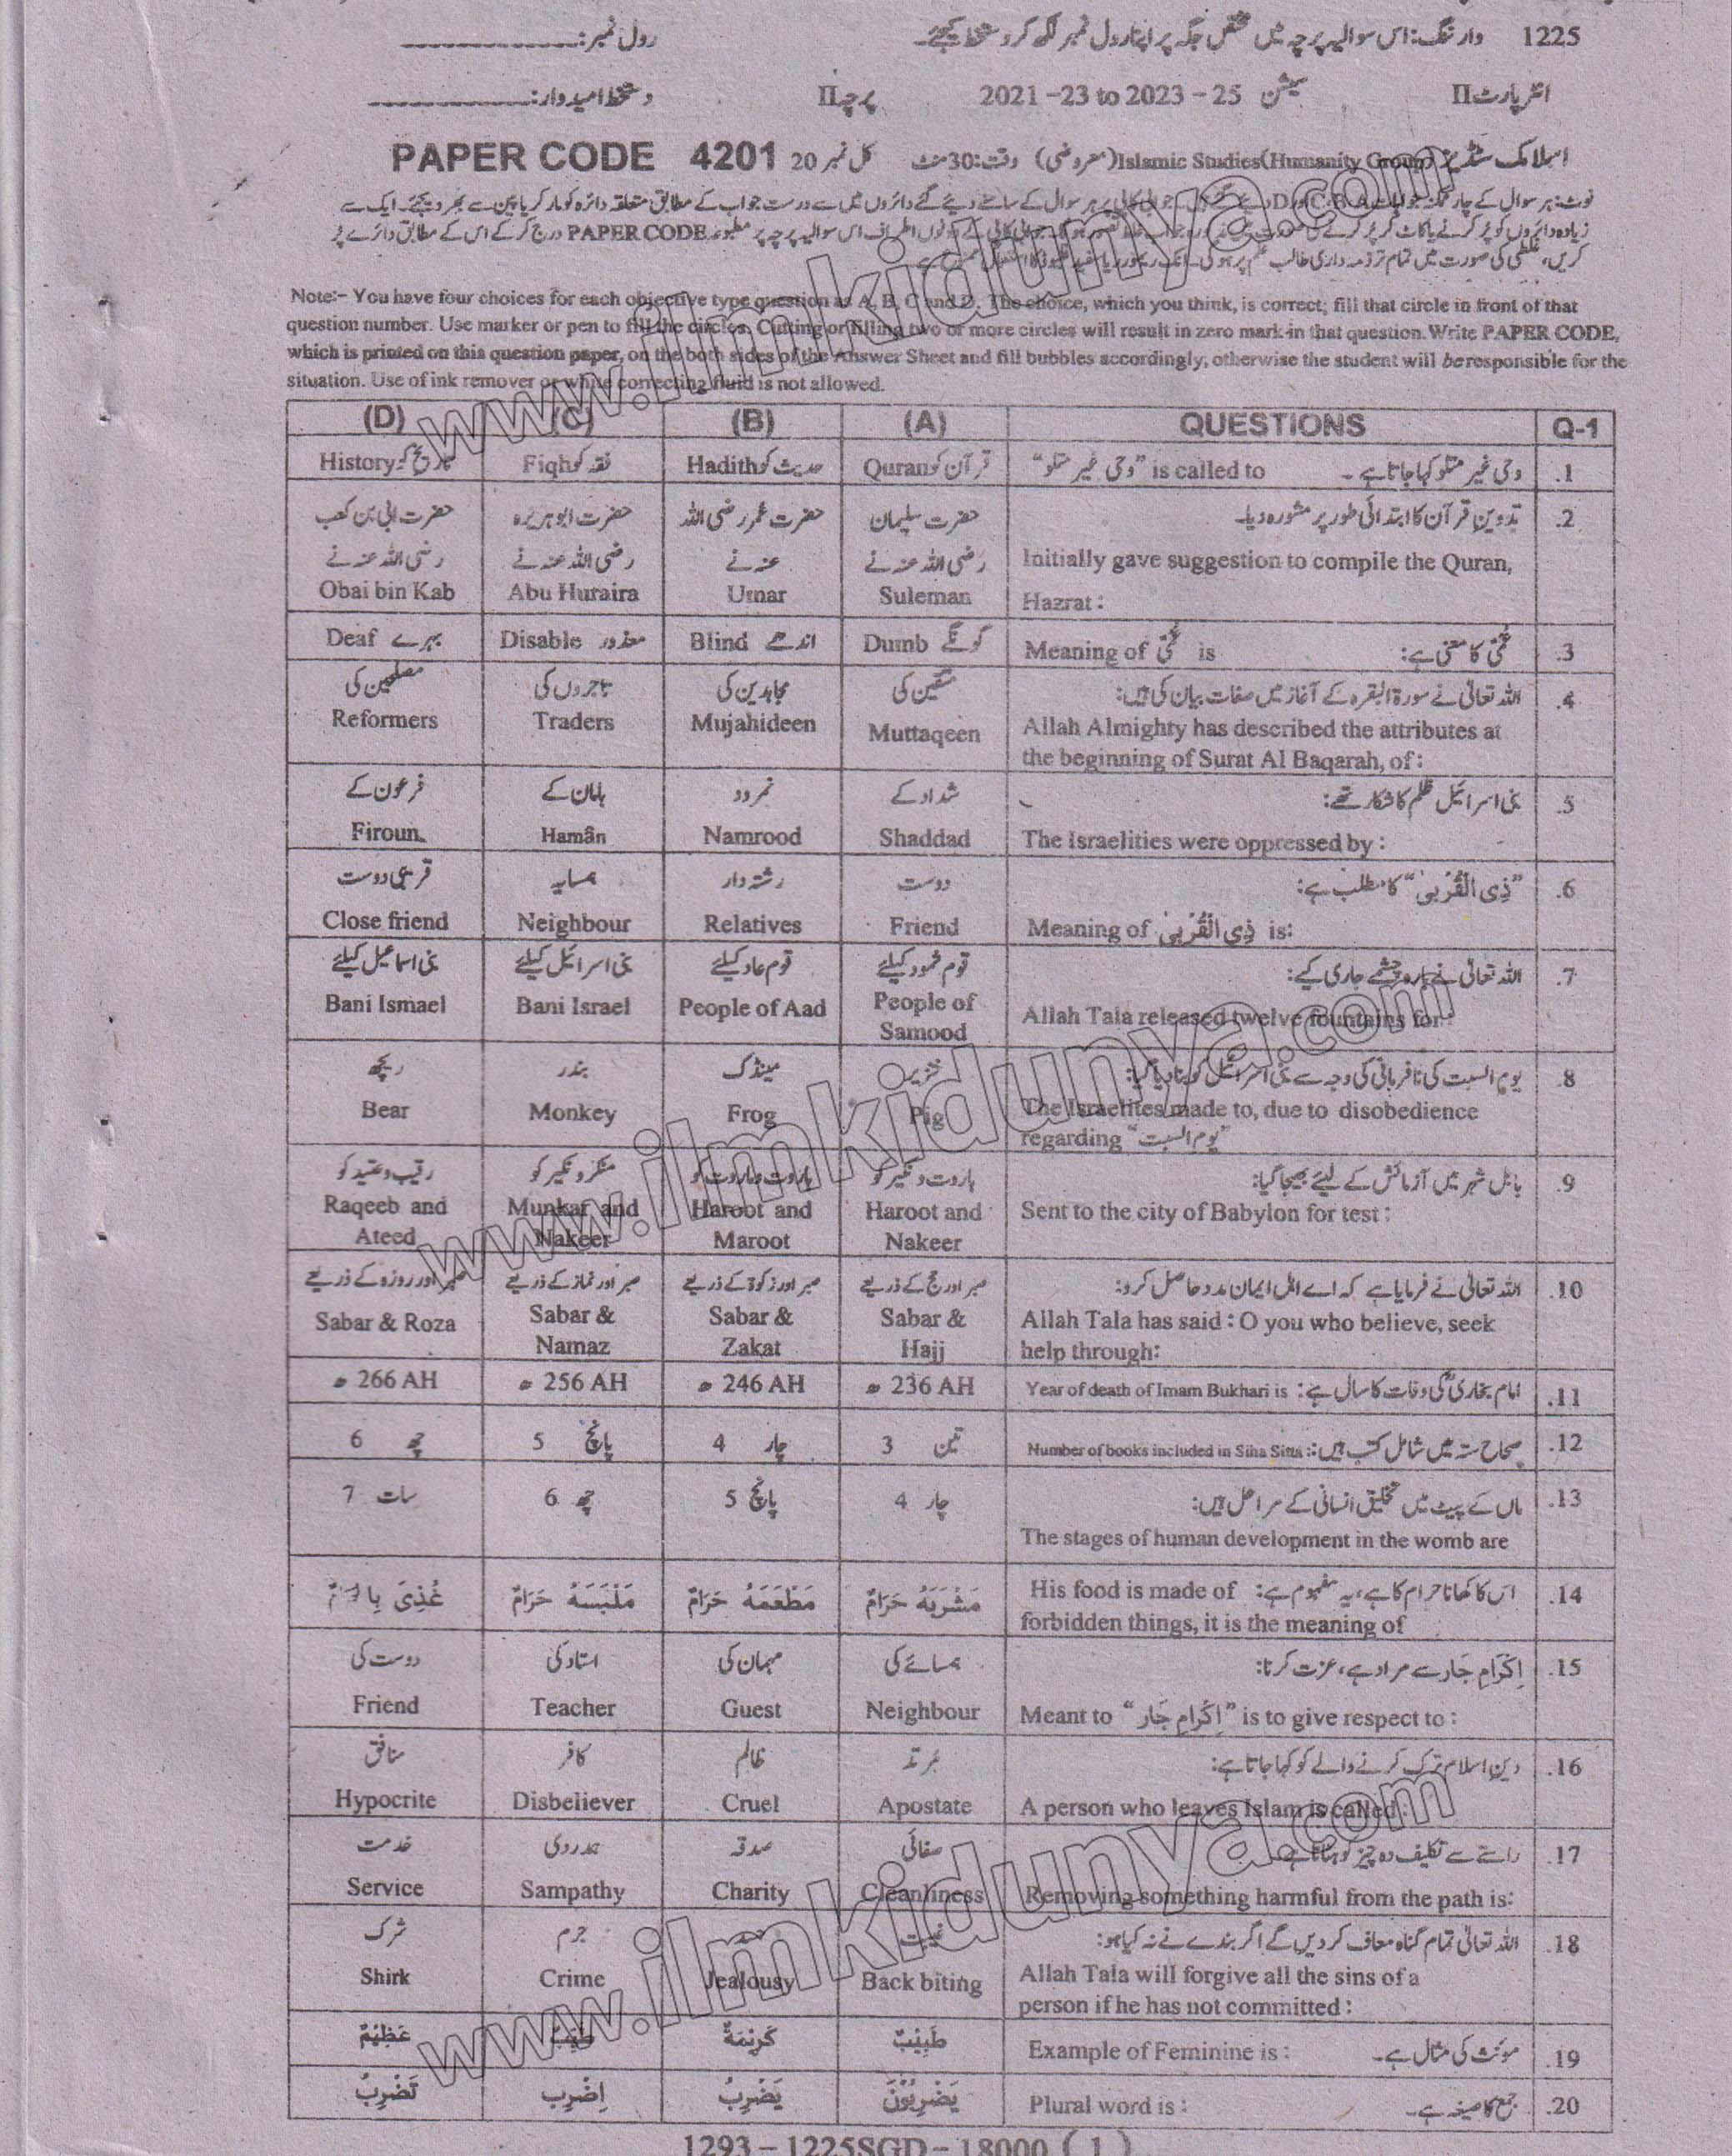 1225 وارننگ: اس سوالیہ پرچہ میں مختص جگہ پر اپنا رول نمبر لکھ کر دستخط کیجئے۔ رول نمبر: ـــــــــــــ
انٹر پارٹ II سیشن 2021 -23 to 2023 - 25 پرچہ II دستخط امیدوار: ـــــــــــــ
اسلامک سٹڈیز Islamic Studies(Humanity Group) (معروضی) وقت: 30 منٹ کل نمبر 20 PAPER CODE 4201
نوٹ: ہر سوال کے چار ممکنہ جوابات A، B، C اور D دیئے گئے ہیں۔ جوابی کاپی پر ہر سوال کے سامنے دیئے گئے دائروں میں سے درست جواب کے مطابق متعلقہ دائرہ کو مارکر یا پین سے بھر دیجئے۔ ایک سے
زیادہ دائروں کو پُر کرنے یا کاٹ کر پُر کرنے کی صورت میں مذکورہ جواب غلط تصور ہوگا۔ جوابی کاپی کے دونوں اطراف اس سوالیہ پرچہ پر مطبوعہ PAPER CODE درج کر کے اس کے مطابق دائرے پُر
کریں، غلطی کی صورت میں تمام تر ذمہ داری طالب علم پر ہوگی۔
Note:- You have four choices for each objective type question as A, B, C and D. The choice, which you think, is correct; fill that circle in front of that
question number. Use marker or pen to fill the circles. Cutting or filling two or more circles will result in zero mark in that question. Write PAPER CODE,
which is printed on this question paper, on the both sides of the Answer Sheet and fill bubbles accordingly, otherwise the student will be responsible for the
situation. Use of ink remover or white correcting fluid is not allowed.
(D) (C) (B) (A) QUESTIONS Q-1
.1 وحی غیر متلو کہا جاتا ہے۔ "وحی غیر متلو" is called to
قرآن کو Quran
حدیث کو Hadith
فقہ کو Fiqh
تاریخ کو History
.2 تدوین قرآن کا ابتدائی طور پر مشورہ دیا۔
Initially gave suggestion to compile the Quran,
Hazrat :
حضرت سلیمان
رضی اللہ عنہ نے
Suleman
حضرت عمر رضی اللہ
عنہ نے
Umar
حضرت ابو ہریرہ
رضی اللہ عنہ نے
Abu Huraira
حضرت ابی بن کعب
رضی اللہ عنہ نے
Obai bin Kab
.3 عُمْیٌ کا معنی ہے: Meaning of عُمْیٌ is
گونگے Dumb
اندھے Blind
معذور Disable
بہرے Deaf
.4 اللہ تعالیٰ نے سورۃ البقرہ کے آغاز میں صفات بیان کی ہیں:
Allah Almighty has described the attributes at
the beginning of Surat Al Baqarah, of :
متقین کی
Muttaqeen
مجاہدین کی
Mujahideen
تاجروں کی
Traders
مصلحین کی
Reformers
.5 بنی اسرائیل ظلم کا شکار تھے:
The Israelities were oppressed by :
شداد کے
Shaddad
نمرود
Namrood
ہامان کے
Hamân
فرعون کے
Firoun
.6 "ذِی الْقُرْبیٰ" کا مطلب ہے:
Meaning of ذِی الْقُرْبیٰ is:
دوست
Friend
رشتہ دار
Relatives
ہمسایہ
Neighbour
قریبی دوست
Close friend
.7 اللہ تعالیٰ نے بارہ چشمے جاری کیے:
Allah Tala released twelve fountains for
قوم ثمود کیلئے
People of
Samood
قوم عاد کیلئے
People of Aad
بنی اسرائیل کیلئے
Bani Israel
بنی اسماعیل کیلئے
Bani Ismael
.8 یوم السبت کی نافرمانی کی وجہ سے بنی اسرائیل کو بنا دیا گیا:
The Israelites made to, due to disobedience
regarding "یوم السبت"
خنزیر
Pig
مینڈک
Frog
بندر
Monkey
ریچھ
Bear
.9 بابل شہر میں آزمائش کے لیئے بھیجا گیا:
Sent to the city of Babylon for test :
ہاروت و نکیر کو
Haroot and
Nakeer
ہاروت و ماروت کو
Haroot and
Maroot
منکر و نکیر کو
Munkar and
Nakeer
رقیب و عتید کو
Raqeeb and
Ateed
.10 اللہ تعالیٰ نے فرمایا ہے کہ اے اہل ایمان مدد حاصل کرو:
Allah Tala has said : O you who believe, seek
help through:
صبر اور حج کے ذریعے
Sabar &
Hajj
صبر اور زکوۃ کے ذریعے
Sabar &
Zakat
صبر اور نماز کے ذریعے
Sabar &
Namaz
صبر اور روزہ کے ذریعے
Sabar & Roza
.11 امام بخاریؒ کی وفات کا سال ہے: Year of death of Imam Bukhari is :
236 AH ھ
246 AH ھ
256 AH ھ
266 AH ھ
.12 صحاح ستہ میں شامل کتب ہیں: Number of books included in Siha Sitta :
تین 3
چار 4
پانچ 5
چھ 6
.13 ماں کے پیٹ میں تخلیق انسانی کے مراحل ہیں:
The stages of human development in the womb are
چار 4
پانچ 5
چھ 6
سات 7
.14 اس کا کھانا حرام کا ہے، یہ مفہوم ہے: His food is made of
forbidden things, it is the meaning of
مَشْرَبُهٗ حَرَامٌ
مَطْعَمُهٗ حَرَامٌ
مَلْبَسُهٗ حَرَامٌ
غُذِیَ
.15 اِکْرَامِ جَار سے مراد ہے، عزت کرنا:
Meant to "اِکْرَامِ جَار" is to give respect to :
ہمسائے کی
Neighbour
مہمان کی
Guest
استاد کی
Teacher
دوست کی
Friend
.16 دین اسلام ترک کرنے والے کو کہا جاتا ہے:
A person who leaves Islam is called :
مُرتد
Apostate
ظالم
Cruel
کافر
Disbeliever
منافق
Hypocrite
.17 راستے سے تکلیف دہ چیز کو ہٹانا ہے
Removing something harmful from the path is:
صفائی
Cleanliness
صدقہ
Charity
ہمدردی
Sampathy
خدمت
Service
.18 اللہ تعالیٰ تمام گناہ معاف کر دیں گے اگر بندے نے نہ کیا ہو:
Allah Tala will forgive all the sins of a
person if he has not committed :
غیبت
Back biting
Jealousy
جرم
Crime
شرک
Shirk
.19 مونث کی مثال ہے۔ Example of Feminine is :
طَبِیْبٌ
کَرِیْمَةٌ
عَظِیْمٌ
.20 جمع کا صیغہ ہے۔ Plural word is :
یَضْرِبُوْنَ
یَضْرِبُ
اِضْرِبْ
تَضْرِبُ
1293 - 1225SGD - 18000 ( 1 )
www.ilmkidunya.com
www.ilmkidunya.com
www.ilmkidunya.com